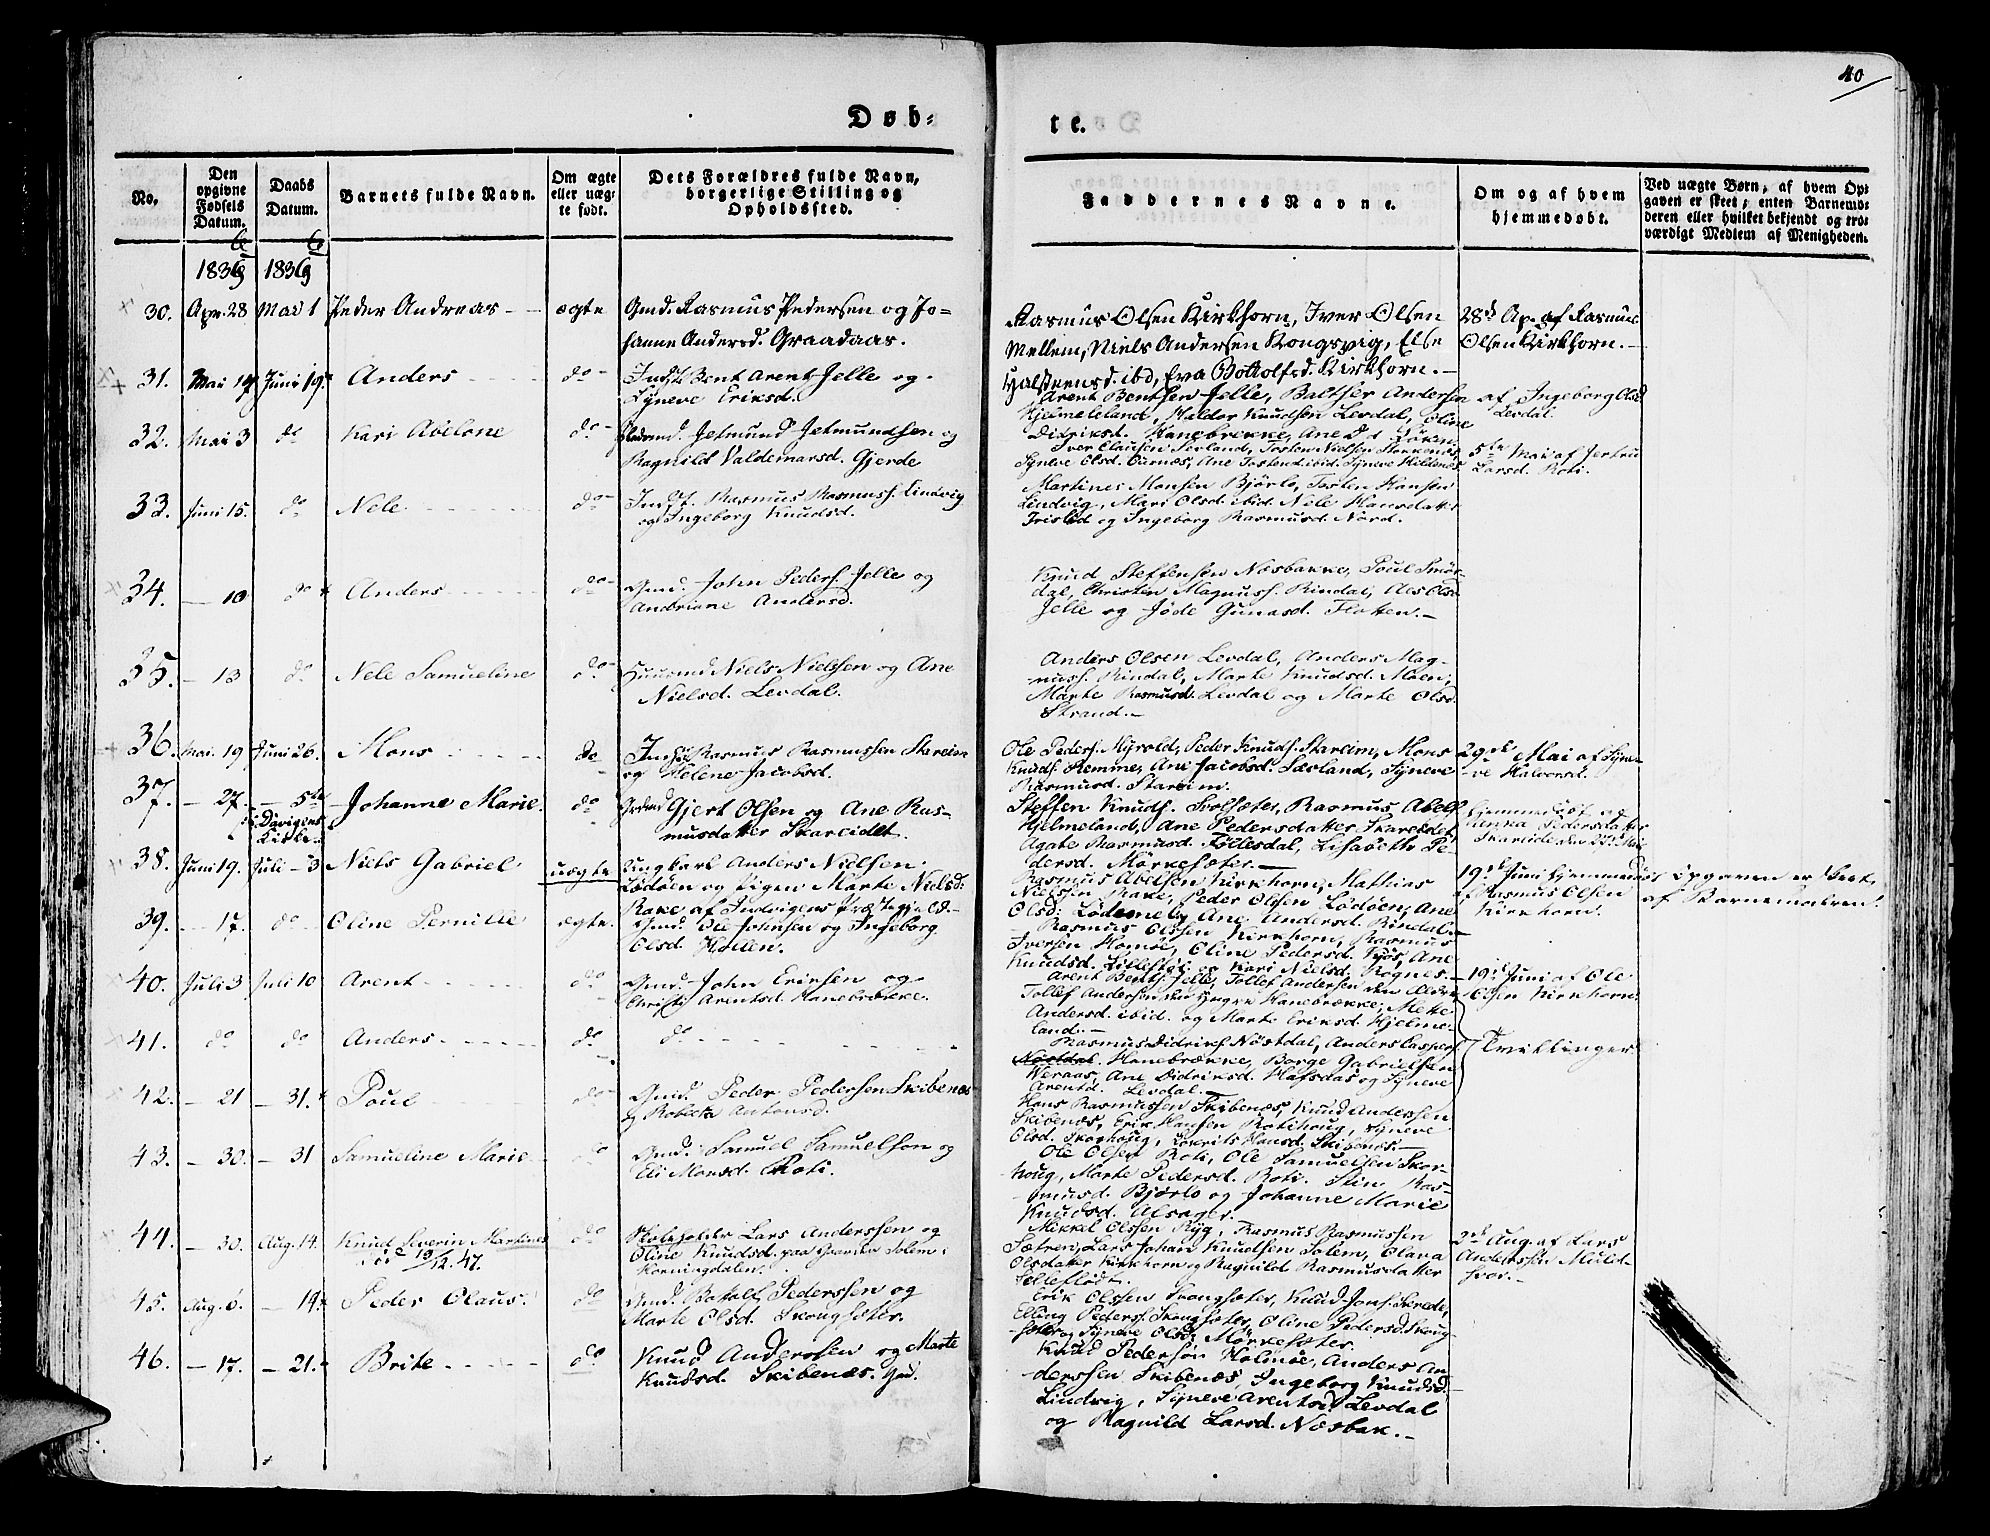 40
Døb-
te.
No.
Den opgivne Fødsels Datum.
Daabs Datum.
Barnets fulde Navn.
Om ægte eller uæg-te født.
Dets Forældres fulde Navn, borgerlige Stilling og Opholdssted.
Faddernes Navne.
Om og af hvem hjemmedøbt.
Ved uægte Børn, af hvem Op-gaven er skeet; enten Barnemo-deren eller hvilket bekjendt og tro-værdigt Medlem af Menigheden.
1836 1836
30. Apr. 28 Mai 1 Peder Andreas ægte Gmd. Rasmus Pedersen og Jo-
hanne Andersd. Graadaas.
Rasmus Olsen Kirkhorn, Iver Olsen
Mellem, Niels Andersen Kongsvig, Else
Halsteensd. ibd, Eva Bottolfsd. Kirkhorn.
28d Ap. af Rasmus
Olsen Kirkhorn.
31. Mai 14 Juni 19 Anders do Inds. Bent Arents. Jelle og
Syneve Eriksd.
Arent Bentsen Jelle, Baltser Andersen
Hjelmeleland, Haldor Knudsen Levdal, Oline
Didriksd. Hanebrekke, Ane
af Ingeborg Olsd
Levdal
32. Mai 3 do Kari Abelone do Jetmund Jetmundsen og
Ragnild Valdemarsd. Gjerde
Iver Clausen Sevland, Tosten Nielsen
Syneve Olsd. Ournæs, Ane Tostend ibid. Syneve Hildenæs
5te Mai af Jertru
Larsd. Roti
33. Juni 15. do Nele do Indst. Rasmus Rasmuss. Lindvig
og Ingeborg Knudsd.
Martines Monsen Bjørlo, Torsten Hansen
Lindvig, Mari Olsd. ibid. Nele Hansdatter
og Ingeborg Rasmusd. Nord.
34. — 10 do Anders do Gmd. John Peders. Jelle og
Andriane Andersd.
Knud Steffensen Næsbakke, Poul Smør-
dal, Christen Magnuss. Rindal, Olsd.
Jelle og Jøde Gunasd. Flotten.
35. — 13 do Nele Samueline do Huusmd Niels Nielsen og Ane
Nielsd. Levdal.
Anders Olsen Levdal, Anders Mag-
nuss. Rindal, Marte Knudsd. Moen,
Marte Rasmusd. Levdal og Marte Olsd.
Strand.
36. Mai. 19 Juni 26. Mons do Inds. Rasmus Rasmussen Stareim
og Helene Jacobsd.
Ole Peders. Myrold, Peder Knuds. Stareim, Mons
Knuds. Hemme, Ane Jacobsd. Sævland, Syneve
Rasmusd. Stareim.
29de Mai af Syne-
ve Halvorsd.
37. — 27. — 5te Johanne Marie. do Gjert Olsen og Ane Ras-
Davigens
Kirke.
musdatter Skareidet.
Steffen Knuds. Sætsæter, Rasmus Abels.
Hjelmeland, Ane Pedersdatter Skareidet,
Agate Rasmusd. Follesdal, Lisabeth Pe-
dersd. Mørkesæter.
hjemmedøbt af
Anna Pedersdatter
Skareide den 27de Mai
38. Juni 19. Juli 3 Niels Gabriel uægte Ungkarl Anders Nielsen
Lødøen og Pigen Marte Nielsd:
Rake af Indvigens Præstegjeld.
Rasmus Abelsen Kirkhorn, Mathias
Nielsen Rake, Peder Olsen Lødøen, Ane
Olsd: Lødemel, Ane Andersd. Rindal.
19d Juni hjemmedøbt
af Rasmus Olsen
Kirkhorn.
opgaven er skeet
af Barnemoderen.
39. — 17. do Oline Pernille ægte. Gmd. Ole Johnsen og Ingeborg
Olsd. Holen.
Rasmus Olsen Kirkhorn, Rasmus
Iversen Homøe, Oline Pedersd. Vøjs, Ane
Knudsd. Lillestøl og Kari Nielsd. Rognes
19d Juni af Ole
Olsen Kirkhorn.
40. Juli 3 Juli 10 Arent do Gmd. John Eriksen og
Christi Arentsd. Hanebrække.
Arent Bents. Jelle, Tollef Andersen den Ældre
Tollef Andersen den Yngre Hanebrække, Mette
Andersd. ibid. og Marte Eriksd. Hjelme-
land.
Tvillinger
41. do do Anders do do
Rasmus Didriks. Nøstdal, Anders Caspers.
Hanebrække, Børge Gabrielsen
Weraas, Ane Didriksd. Hafsdas og Syneve
Arentd. Levdal.
42. — 21 — 31. Poul do Gmd. Peder Pedersen Skibenæs
og Rebecka Antonsd.
Hans Rasmussen Skibenæs, Knud Andersen
Skibenæs, Erik Hansen Rotihoug, Syneve
Olsd. Skorhoug, Hansd. Skibenæs.
43. — 30. — 31 Samueline Marie do Gmd. Samuel Samuelson og
Eli Monsd. Roti.
Ole Olsen Roti, Ole Samuelsen Skor-
houg, Marte Pedersd. Roti. Stin Ras-
musd. Bjørlo og Johanne Marie
Knudsd. Alsager.
44. — 30. Aug. 14. Knud Severin Martines do Lars Anderssen og
19/12. 47.
Oline Knudsd. paa Gaarden Solem i
Horningdalen.
Mikkel Olssen Ryg, Rasmus Rasmussen
Sætren, Lars Johan Knudsen Solem, Olava
Olsdatter Kirkhorn og Ragnild Rasmusdatter
2d Aug. af Lars
Anderssøn Muld-
svor.
45. Aug. 6. — 14. Peder Olaus. do Gmd. Batolf Pederssen og
Marte Olsd. Skougsæter.
Erik Olssen Skongsæter, Knud Jons. Skrede,
Elling Peders. Skougsæter, Oline Pedersd. Skoug-
sæter og Syneve Olsd. Mørkesæter.
46. — 17. — 21. Brite do Knud Anderssen og Marte
Knudsd. Skibenæs. Gmd.
Knud Pedersøn Holmøe, Anders An-
derssen Skibenæs, Ingeborg Knudsd.
Lindvig, Syneve Arentsd. Levdal
og Ragnild Larsd. Næsbak.